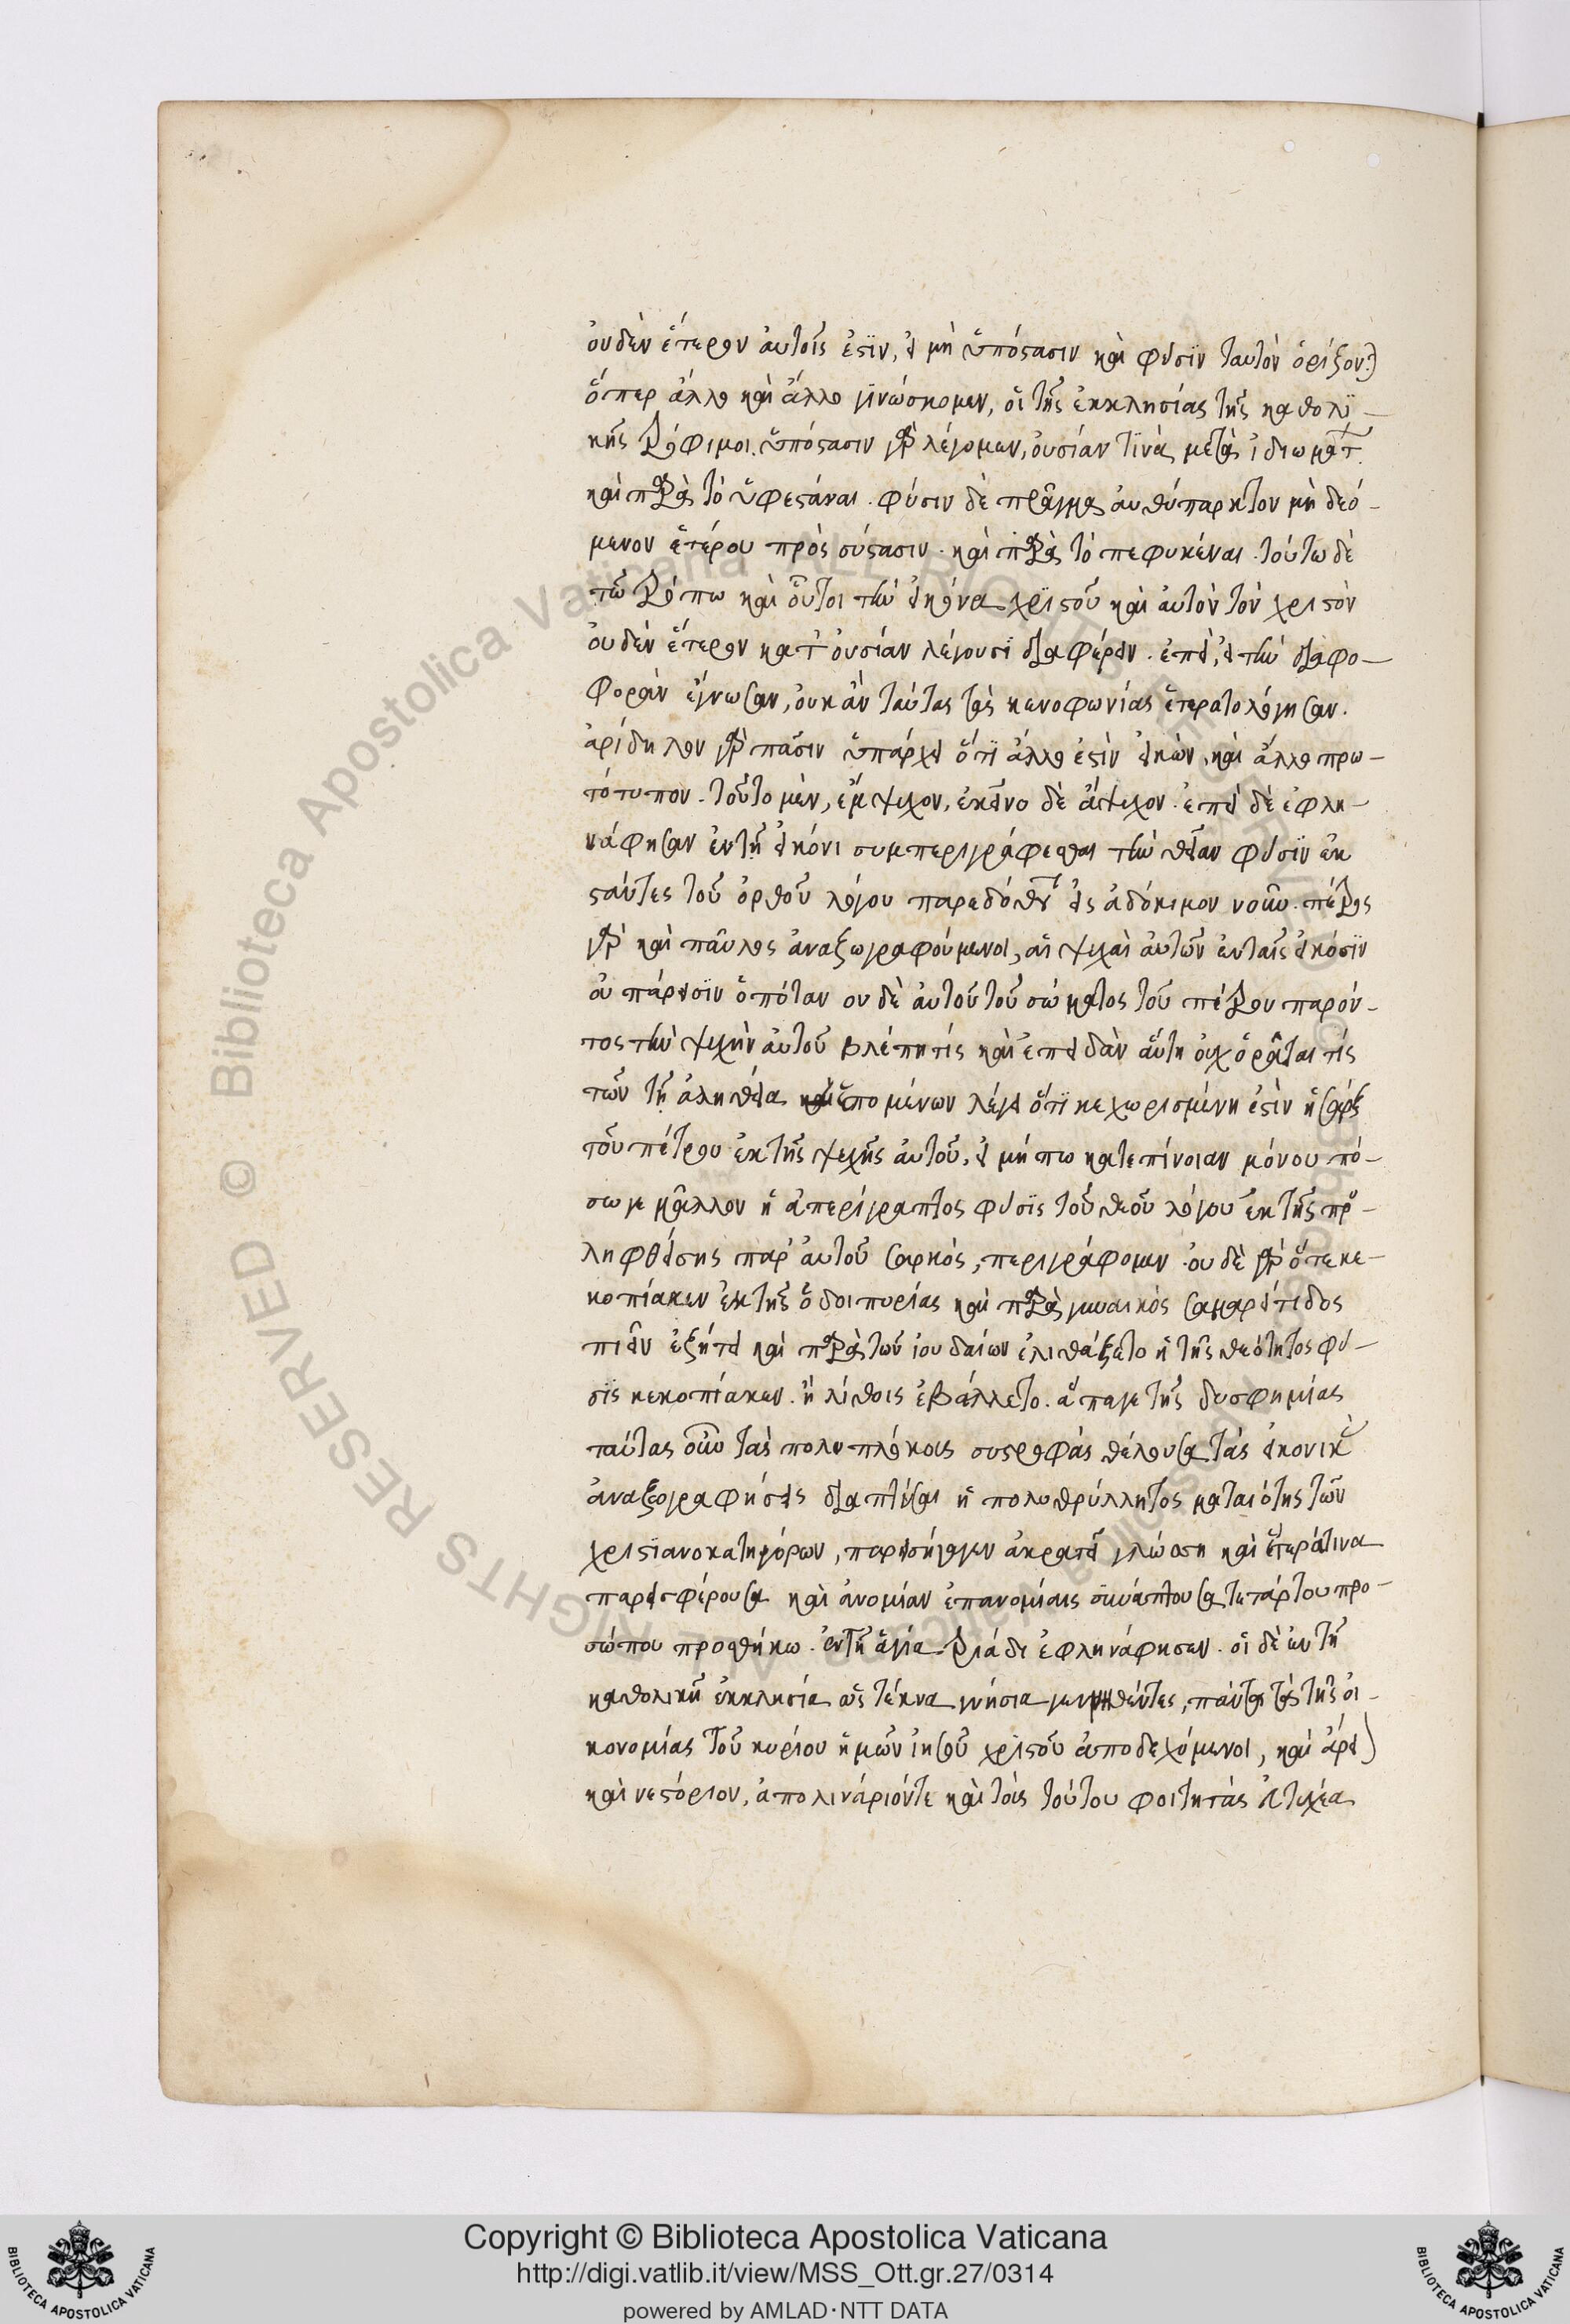 οὐδὲν ἕτερον αὐτοῖς ἐστϊν, εἰ μὴ ὑπόστασιν καὶ φύσϊν ταυτὸν ὁρίζονται
ὅπερ ἄλλο καὶ ἄλλο γϊνώσκομεν, οἱ τῆς ἐκκλησίας τῆς καθολϊ-
κῆς τρόφιμοι. ὑπόστασιν γὰρ λέγομεν, οὐσίαν τϊνὰ μετὰ ἰδιωμάτ
καὶ παρὰ τὸ ὑφεστάναι. φύσιν δὲ πρᾶγμα αυθύπαρκτον μὴ δεό-
μενον ἑτέρου πρὸς σύστασιν. καὶ παρὰ τὸ πεφυκέναι. τούτω δὲ
τῶ τρόπω καὶ οὗτοι τὴν εἰκόνα χρϊστοῦ καὶ αὐτὸν τὸν χριστὸν
οὐδὲν ἕτερον κατ' οὐσίαν λέγουσϊ διαφέρειν. ἐπεὶ, εἰ τὴν διαφο-
φορὰν ἔγνωσαν, οὐκ ἂν ταύτας τὰς κενοφωνίας ἑτερατολόγησαν.
ἀρίδηλον γὰρ πᾶσιν ὑπάρχει ὅτϊ ἄλλο ἐστὶν εἰκὼν, καὶ ἄλλο πρω-
τότυπον. τοῦτο μὲν, ἔμψυχον, ἐκεῖνο δὲ ἄψυχον. ἐπεὶ δὲ ἐφλη-
νάφησαν ἐν τῇ εἰκόνι συμπεριγράφεσθαι τὴν θείαν φύσϊν ἐκ
στάντες τοῦ ὀρθοῦ λόγου παρεδόθησαν εἰς ἀδόκιμον νοῦν. πέτρος
γὰρ καὶ παῦλος ἀναζωγραφούμενοι, αἱ ψυχαὶ αὐτῶν ἐν ταῖς εἰκόσϊν
οὐ πάρεισϊν ὁπόταν ουδὲ αὐτοῦ τοῦ σώματος τοῦ πέτρου παρόν-
τος τὴν ψυχὴν αὐτοῦ βλέπη τίς καὶ ἐπειδὰν αὕτη οὐχ ὁρᾶται τίς
τῶν τῆ ἀληθεία ἑπομένων λέγει ὅτϊ κεχωρισμένη ἐστὶν ἡ σὰρξ
τοῦ πέτρου ἐκ τῆς ψυχῆς αὐτοῦ, εἰ μή πω κατεπίνοιαν μόνου πό-
σω γε μᾶλλον ἡ ἀπερίγραπτος φύσϊς τοῦ θεοῦ λόγου ἐκ τῆς πρ-
ληφθείσης παρ' αὐτοῦ σαρκὸς, περιγράφομεν. ουδὲ γὰρ ὅτε κε-
κοπίακεν ἐκ τῆς ὁδοιπορίας καὶ παρὰ γυναικὸς σαμαρείτιδος
πιεῖν ἐζήτει καὶ παρὰ τῶν ἰουδαίων ἐλιθάζετο ἡ τῆς θεότητος φύ-
σϊς κεκοπίακεν. ἢ λίθοις ἐβάλλετο. ἄπαγε τῆς δυσφημίας
ταύτας οὖν τὰς πολυπλόκους συστροφὰς θέλουσα τὰς εἰκονικὰς
ἀναζογραφήσεις διαπτύσαι ἡ πολυθρύλλητος ματαιότης τῶν
χριστϊανοκατηγόρων, παρεισήγαγεν ἀκρατεῖ γλώσση καὶ ἕτερά τινα
παρεισφέρουσα καὶ ἀνομίαν ἐπανομίαις συνάπτουσα τετάρτου προ-
σώπου προσθήκω. ἐν τῇ ἁγία τριάδι ἐφληνάφησεν. οἱ δὲ ἐν τῇ
καθολικῇ ἐκκλησία ὡς τέκνα γνήσια γεννηθέντες, πάντα τὰ τῆς οἰ-
κονομίας τοῦ κυρίου ἡμῶν ἰησοῦ χρϊστοῦ ἀποδεχόμενοι, καὶ ἄρει
καὶ νεστόριον, ἀπολινάριόντε καὶ τοὺς τούτου φοιτητὰς εὐτυχέα